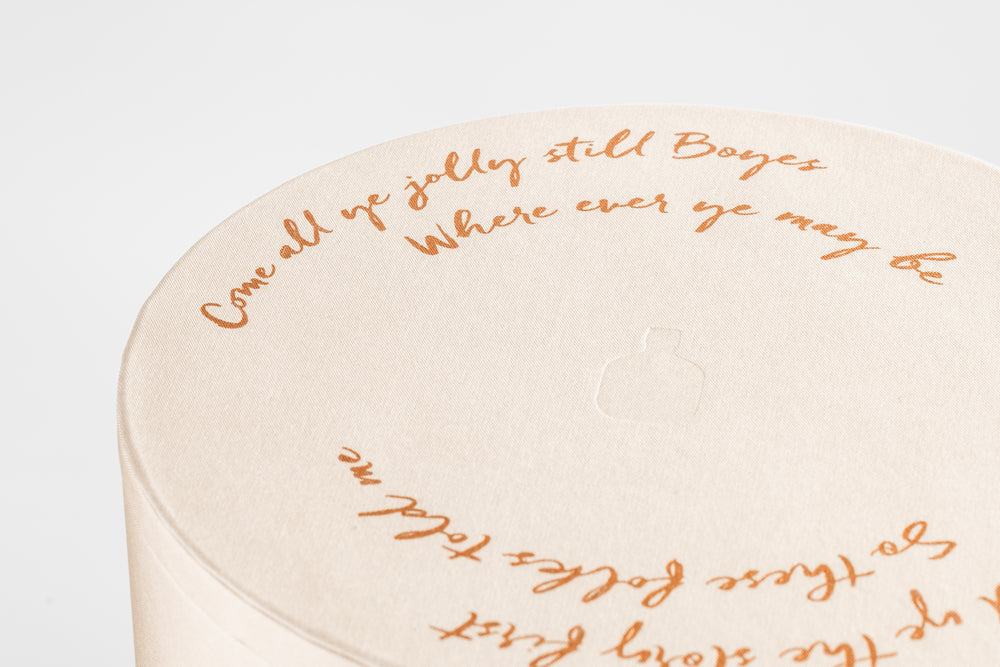 Come all ye jolly still Boyes
Where ever ye may be
ye the story first
So these folks told me